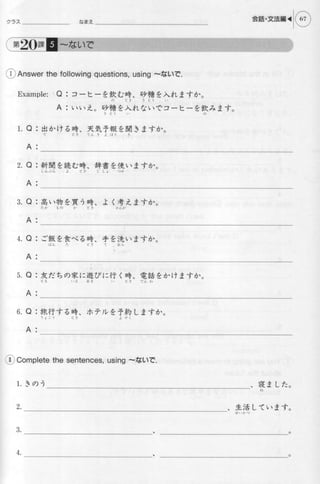 クラス なまえ 会話・文法編 67
第20課 5 ～ないで
Ⅰ Answer the following questions, using ～ないで.
Example: Q：コーヒーを飲む時、砂糖を入れますか。
A：いいえ。砂糖を入れないでコーヒーを飲みます。
1. Q：出かける時、天気予報を聞きますか。
A：
2. Q：新聞を読む時、辞書を使いますか。
A：
3. Q：高い物を買う時、よく考えますか。
A：
4. Q：ご飯を食べる時、手を洗いますか。
A：
5. Q：友だちの家に遊びに行く時、電話をかけますか。
A：
6. Q：旅行する時、ホテルを予約しますか。
A：
Ⅱ Complete the sentences, using ～ないで.
1. きのう 、寝ました。
2. 、生活しています。
3. 、 。
4. 、 。